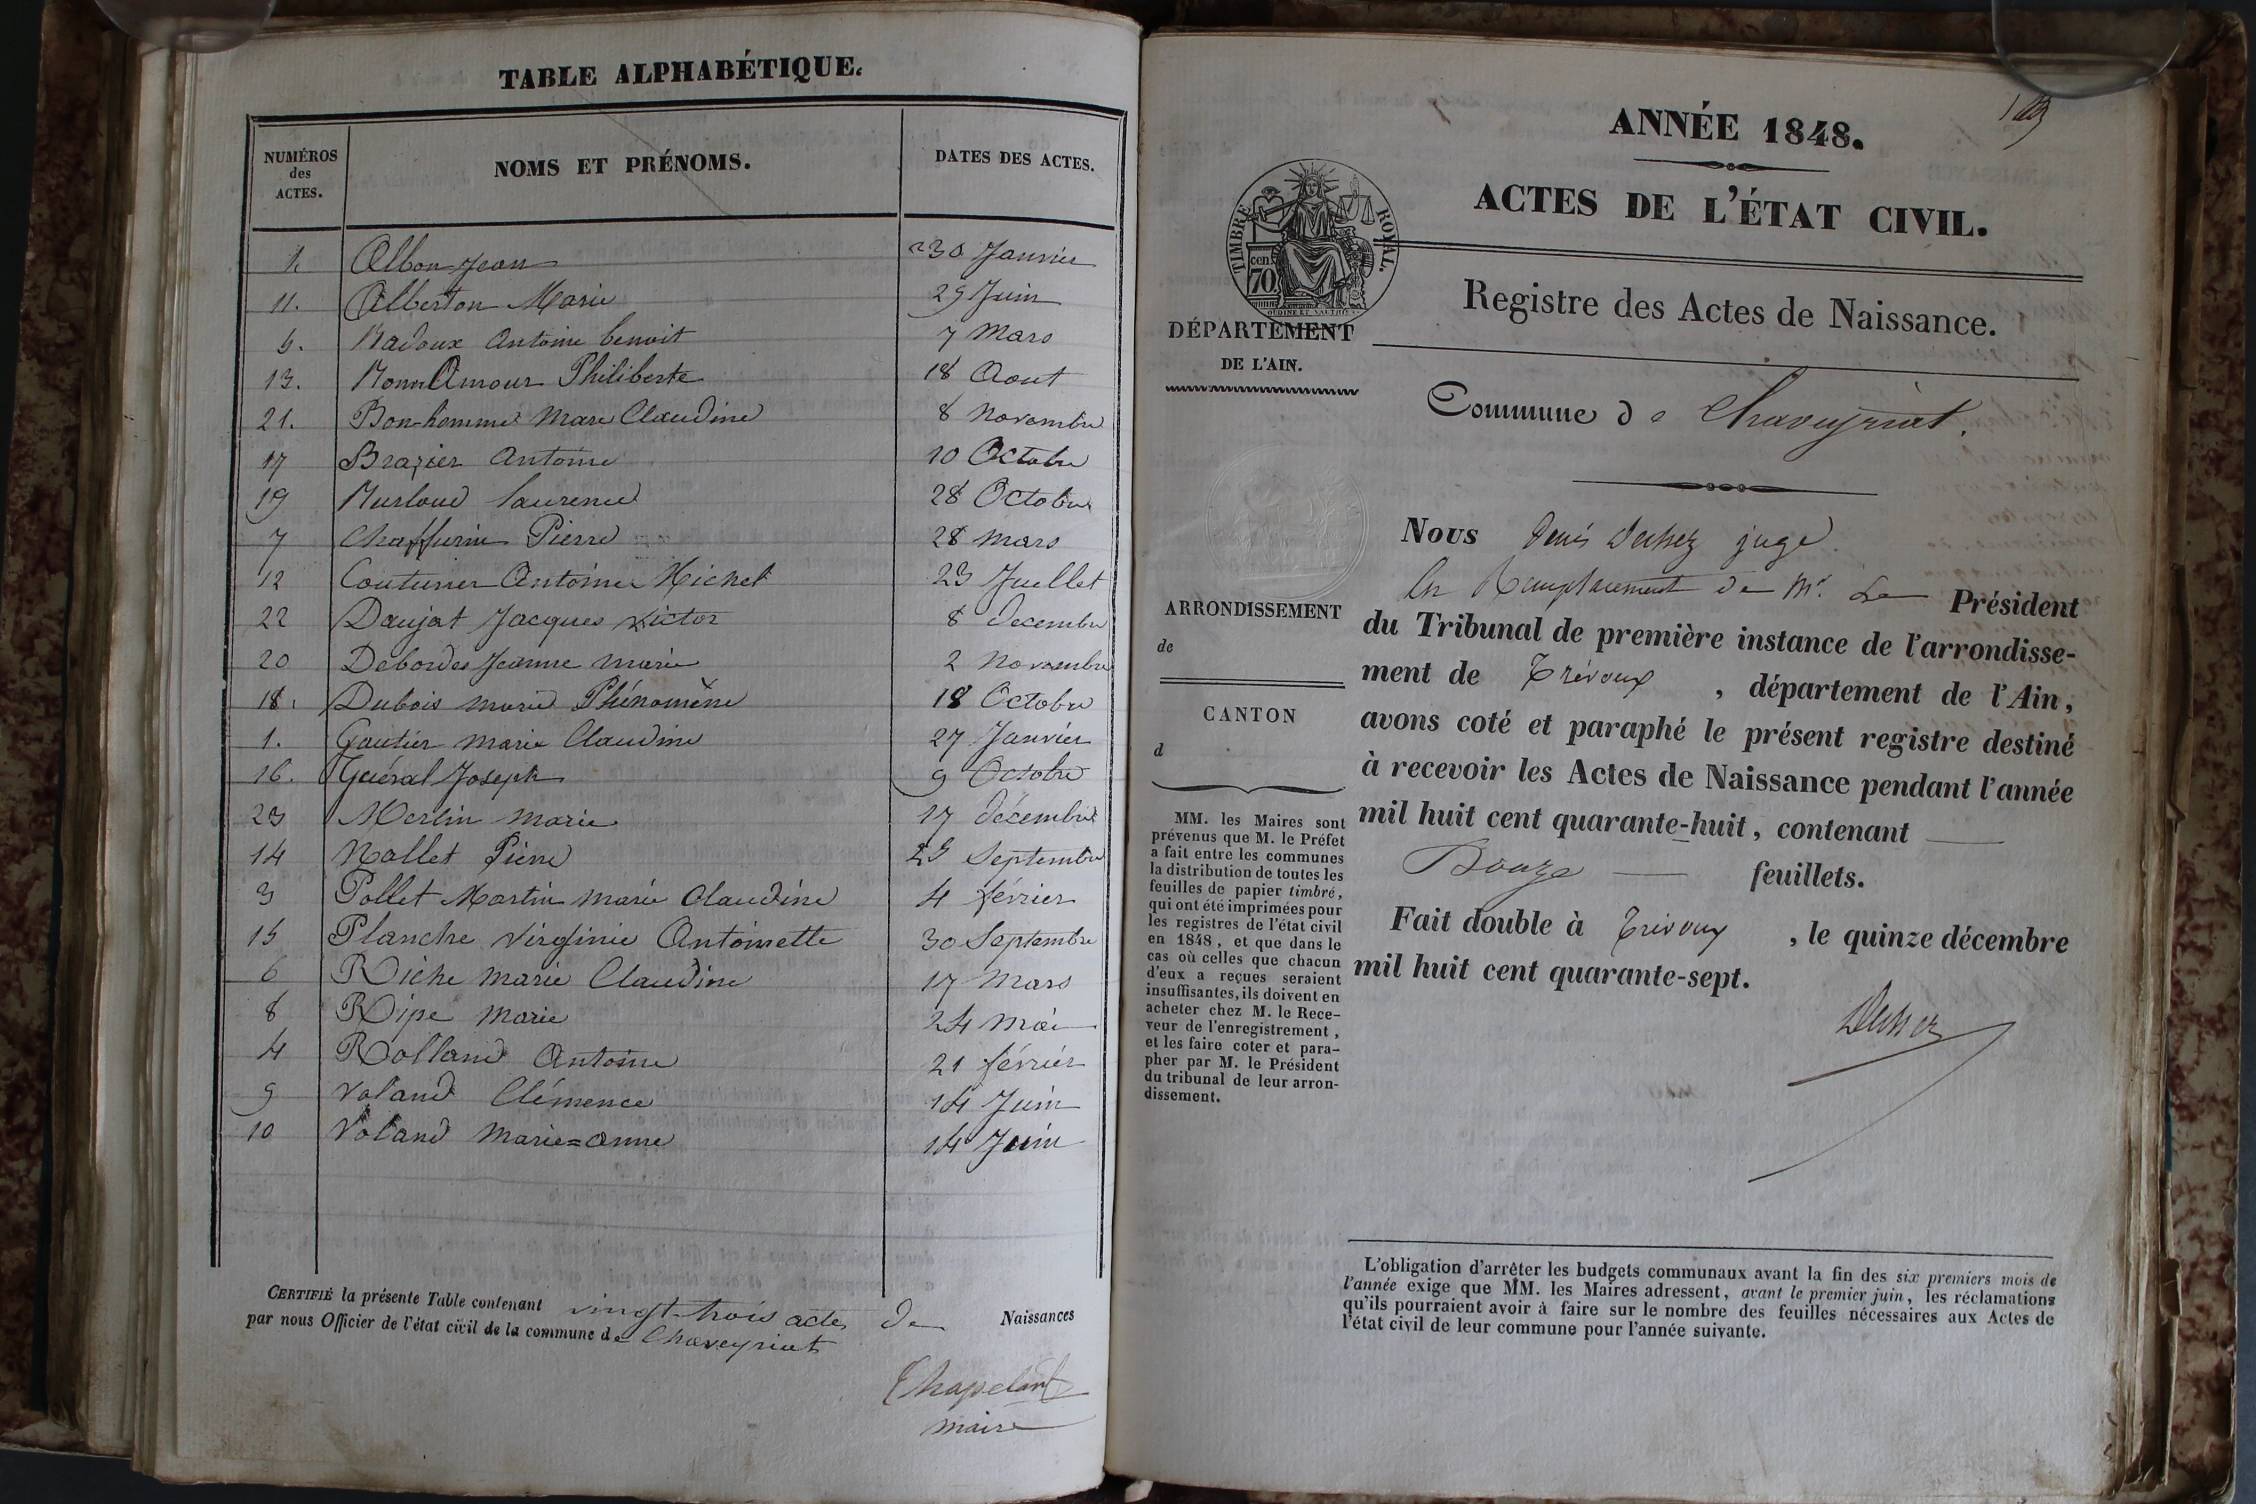 TABLE ALPHABÉTIQUE.
NUMÉROS des ACTES.
NOMS ET PRÉNOMS.
DATES DES ACTES.
1. Albon Jean 30 Janvier
11. Alberton Marie 29 Juin
5. Badoux Antoine benoit 7 Mars
13. Bonn Amour Philiberte 18 Aout
21. Bon-homme Marie Claudine 8 Novembre
17 Brazier Antoine 10 Octobre
19 Burloud laurence 28 Octobre
7 Chaffurin Pierre 28 Mars
12 Couturier Antoine Michel 23 Juillet
22 Daujat Jacques victor 8 Decembre
20 Debordes Jeanne marie 2 Novembre
18. Dubois marie Phénomène 18 Octobre
1. Gautier marie Claudine 27 Janvier
16. Guéral Joseph 9 Octobre
23 Merlin marie 17 décembre
14 Nallet Pierre 25 Septembre
3 Pollet Martin marie Claudine 4 février
15 Planche virginie Antoinette 30 Septembre
6 Riche marie Claudine 17 Mars
8 Ripe marie 24 mai
4 Rolland Antoine 21 février
9 Voland Clémence 14 Juin
10 Voland Marie=anne 14 Juin
CERTIFIÉ la présente Table contenant vingt-trois actes de Naissances
par nous Officier de l'état civil de la commune de Chaveyriat
Chapeland
maire
ANNÉE 1848.
ACTES DE L'ÉTAT CIVIL.
TIMBRE ROYAL.
70 cen.
Registre des Actes de Naissance.
DÉPARTEMENT
DE L'AIN.
Commune de Chaveyriat.
Nous Denis Duhez juge
En Remplacement de Mr. Le Président
du Tribunal de première instance de l'arrondisse-
ment de Trévoux, département de l'Ain,
avons coté et paraphé le présent registre destiné
à recevoir les Actes de Naissance pendant l'année
mil huit cent quarante-huit, contenant
Douze feuillets.
Fait double à Trévoux, le quinze décembre
mil huit cent quarante-sept.
ARRONDISSEMENT
de
CANTON
d
MM. les Maires sont
prévenus que M. le Préfet
a fait entre les communes
la distribution de toutes les
feuilles de papier timbré,
qui ont été imprimées pour
les registres de l'état civil
en 1848, et que dans le
cas où celles que chacun
d'eux a reçues seraient
insuffisantes, ils doivent en
acheter chez M. le Rece-
veur de l'enregistrement,
et les faire coter et para-
pher par M. le Président
du tribunal de leur arron-
dissement.
L'obligation d'arrêter les budgets communaux avant la fin des six premiers mois de
l'année exige que MM. les Maires adressent, avant le premier juin, les réclamations
qu'ils pourraient avoir à faire sur le nombre des feuilles nécessaires aux Actes de
l'état civil de leur commune pour l'année suivante.